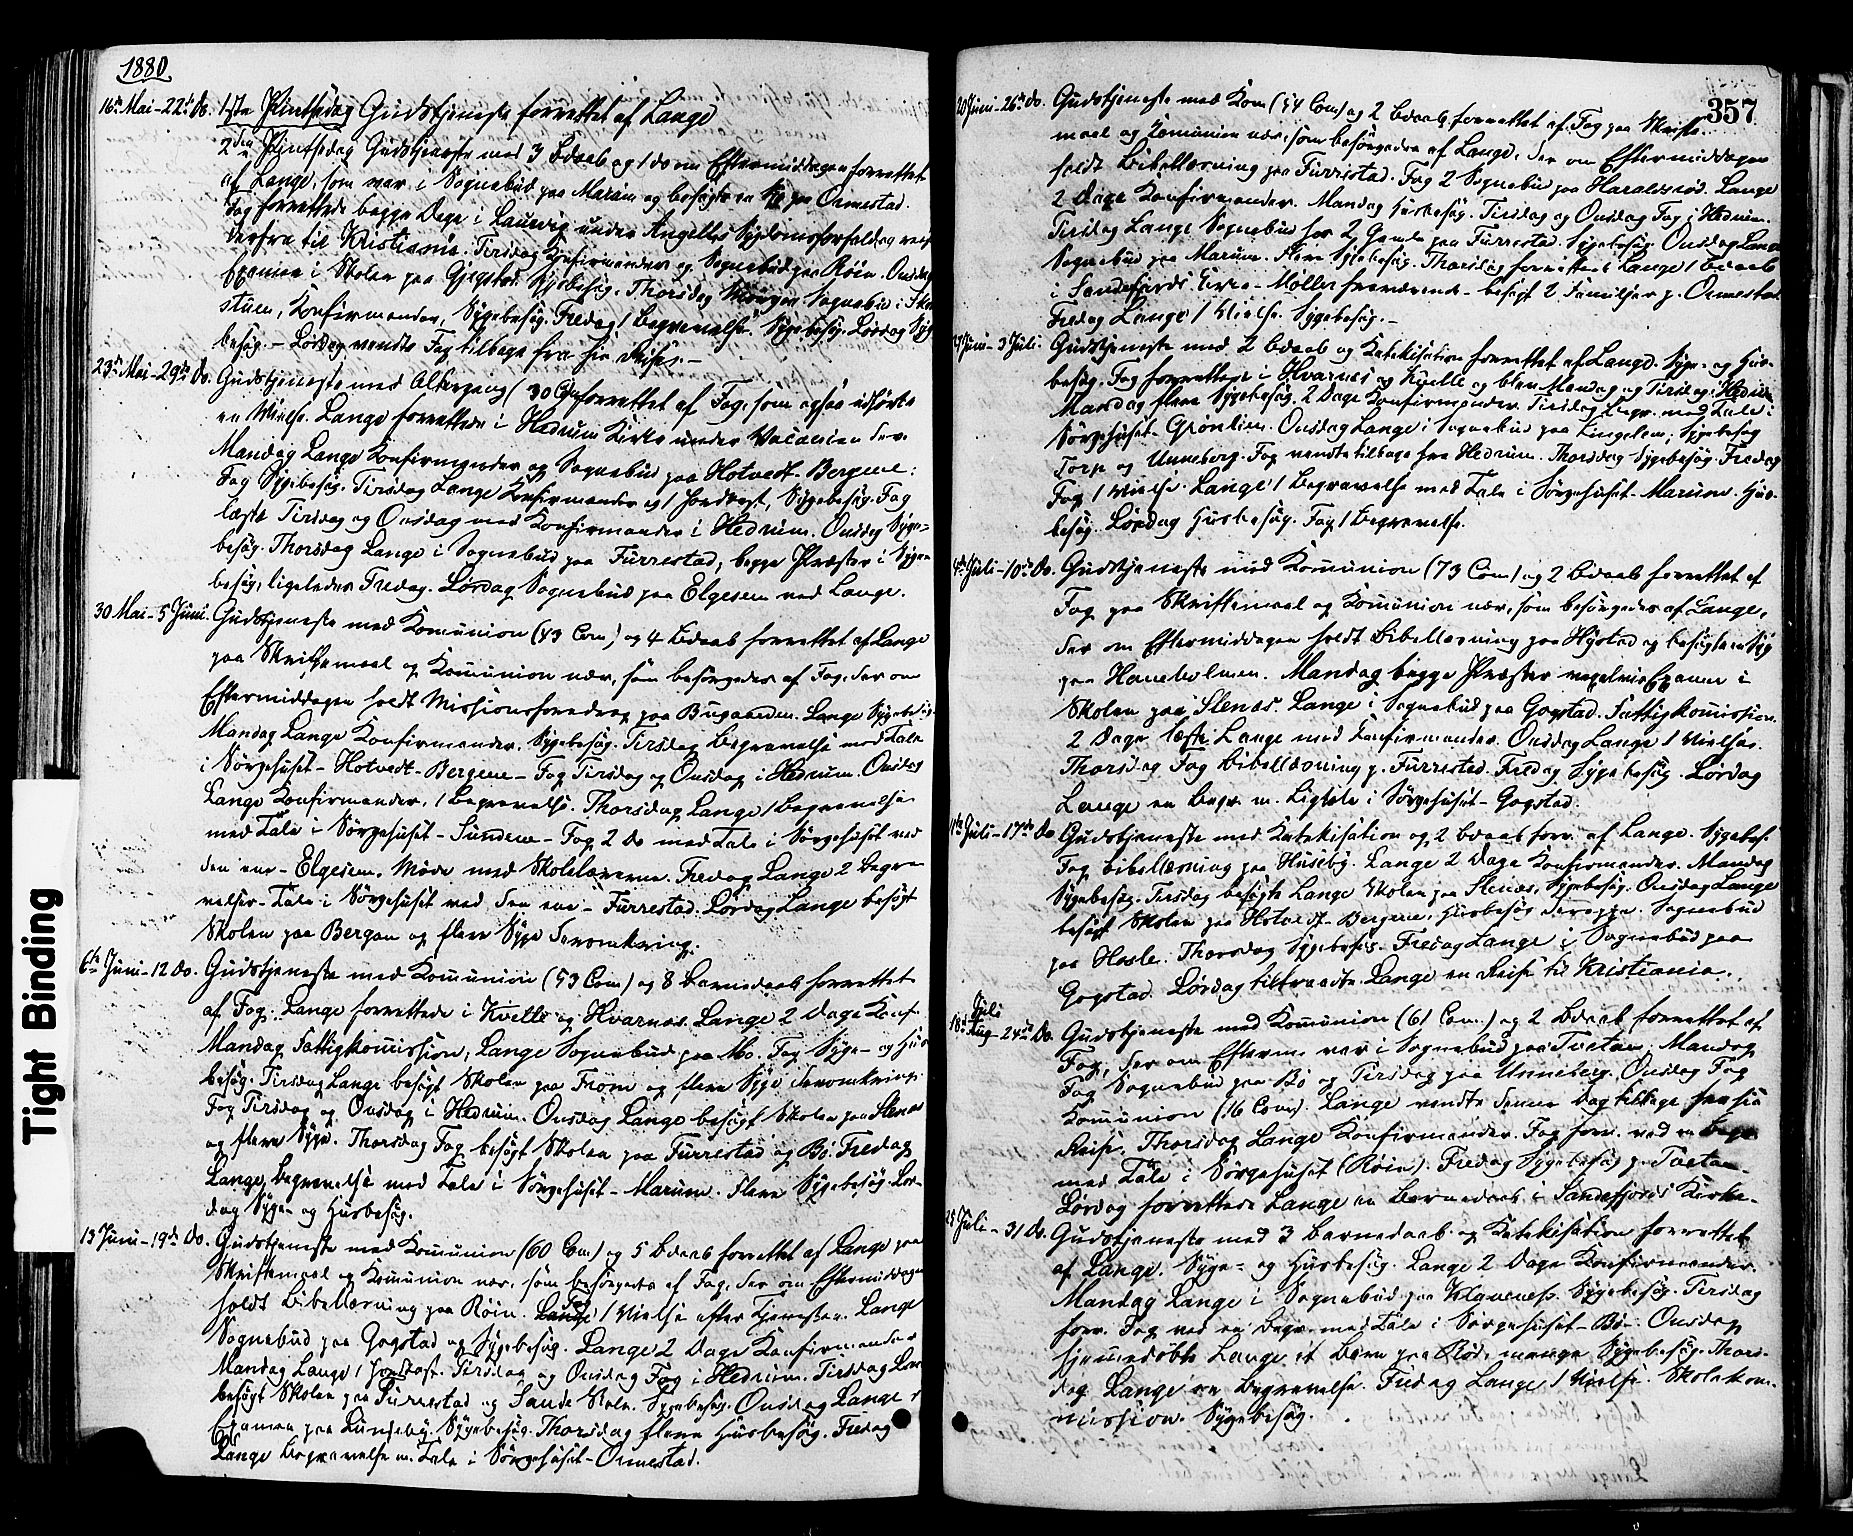 1880
16de Mai-22de Do. 1ste Pintsedag Gudstjeneste forrettet af Lange
2den Pintsedag Gudstjeneste med 3 Bdaab og 1 do om Eftermiddagen forrettet
af Lange, som var i Sognebud paa Marum og besøgte en Syg paa Ormestad.
Fog forrettede begge Dage i Laurvig under Angells Sygdomsforfald og reiste
derfra til Kristiania. Tirsdag Konfirmander og Sognebud paa Røien. Onsdag
Examen i Skolen paa Gjegstad. Sygebesøg. Thorsdag Morgen Sognebud i
stuen, Konfirmander, Sygebesøg. Fredag 1 Begravelse. Sygebesøg. Lørdag Syge
besøg. - Lørdag vendte Fog tilbage fra sin Reise. -
23de Mai-29de Do. Gudstjeneste med Altergang (30 Com) forrettet af Fog, som ogsaa udførte
en Vielse. Lange forrettede i Hedrum Kirke under Vacancen der.
Mandag Lange Konfirmander og Sognebud paa Hotvedt-Bergene.
Fog Sygebesøg. Tirsdag Lange Konfirmander og 1 Jordfæst, Sygebesøg. Fog
læste Tirsdag og Onsdag med Konfirmander i Hedrum. Onsdag Syge-
besøg. Thorsdag Lange i Sognebud paa Furrestad, begge Præster i Syge-
besøg, ligeledes Fredag. Lørdag Sognebud paa Elgesem ved Lange.
30 Mai-5 Juni. Gudstjeneste med Komunion (43 Com.) og 4 Bdaab forrettet af Lange
paa Skriftemaal og Komunion nær, som besørgedes af Fog, der om
Eftermiddagen holdt Missionsforedrag paa Bugaarden. Lange Sygebesøg.
Mandag Lange Konfirmander, Sygebesøg. Tirsdag Begravelse med Tale
i Sørgehuset-Hotvedt-Bergene-Fog Tirsdag og Onsdag i Hedrum. Onsdag
Lange Konfirmander, 1 Begravelse. Thorsdag Lange 1 Begravelse
med Tale i Sørgehuset-Sundene-Fog 2 Do med Tale i Sørgehuset ved
den ene-Elgesem. Møde med Skolelærerne. Fredag Lange 2 Begra
velser-Tale i Sørgehuset ved den ene-Furrestad. Lørdag Lange besøgt
Skolen paa Bergan og flere Syge deromkring.
6te Juni-12 Do. Gudstjeneste med Komunion (53 Com) og 8 Barnedaab forrettet
af Fog. Lange forrettede i Kvelle og Hvarnæs. Lange 2 Dage Konf.
Mandag Fattigkomission, Lange Sognebud paa Mo. Fog Syge- og Hus
besøg. Tirsdag Lange besøgt Skolen paa From og flere Syge deromkring.
Fog Tirsdag og Onsdag i Hedrum. Onsdag Lange besøgt Skolen paa Stenæs
og flere Syge. Thorsdag Fog besøgt Skolen paa Furrestad og Bø. Fredag
Lange Begravelse med Tale i Sørgehuset-Marum. Flere Sygebesøg. Lør-
dag Syge- og Husbesøg.
13 Juni-19de Do. Gudstjeneste med Komunion (60 Com) og 5 Bdaab forrettet af Lange paa
Skriftemaal og Komunion nær, som besørgedes af Fog, der om Eftermiddagen
holdt Bibellæsning paa Røien. Fog 1 Vielse efter Tjenesten. Lange
Sognebud paa Gogstad og Sygebesøg. Lange 2 Dage Konfirmander
Mandag Lange 1 Jordfæst. Tirsdag og Onsdag Fog i Hedrum. Tirsdag Lange
besøgt Skolen paa Furrestad og Sande Skole. Sygebesøg. Onsdag Lange
Examen paa Lundeby. Sygebesøg. Thorsdag flere Husbesøg. Fredag
Lange Begravelse m. Tale i Sørgehuset-Ormestad.
357
20 Juni-26de Do. Gudstjeneste med Kom (54 Com) og 2 Bdaab forrettet af Fog paa Skrifte-
maal og Komunion nær, som besørgedes af Lange, der om Eftermiddagen
holdt Bibellæsning paa Furrestad. Fog 2 Sognebud paa Haraldsrød. Lange
2 Dage Konfirmander. Mandag Husbesøg. Tirsdag og Onsdag Fog i Hedrum.
Tirsdag Lange Sognebud hos 2 Gamle paa Furrestad. Sygebesøg. Onsdag Lange
Sognebud paa Marum. Flere Sygebesøg. Thorsdag forrettede Lange 1 Bdaab
i Sandefjords Kirke-Møller fraværende-besøgt 2 Familjer p. Ormestad
Fredag Lange 1 Vielse. Sygebesøg. -
27 Juni-3 Juli. Gudstjeneste med 2 Bdaab og Katekisation forrettet af Lange. Syge- og Hus-
besøg. Fog forrettede i Hvarnæs og Kvelle og blev Mandag og Tirsdag i Hedrum
Mandag flere Sygebesøg. 2 Dage Konfirmander. Tirsdag Begr. med Tale i
Sørgehuset-Grønlien. Onsdag Lange i Sognebud paa Lingelem, Sygebesøg
Torp og Unneberg. Fog vendte tilbage fra Hedrum. Thorsdag Sygebesøg. Fredag
Fog 1 Vielse. Lange 1 Begravelse med Tale i Sørgehuset-Marum. Hus-
besøg. Lørdag Husbesøg. Fog 1 Begravelse.
4de Juli-10de Do. Gudstjeneste med Komunion (73 Com) og 2 Bdaab forrettet af
Fog paa Skriftemaal og Komunion nær, som besørgedes af Lange,
der om Eftermiddagen holdt Bibellæsning paa Hystad og besøgte en Syg
paa Haneholmen. Mandag begge Præster Examen i
Skolen paa Stenæs. Lange i Sognebud paa Gogstad. Fattigkomission.
2 Dage læste Lange med Konfirmander. Onsdag Lange 1 Vielse.
Thorsdag Fog Bibellæsning p. Furrestad. Fredag Sygebesøg. Lørdag
Lange en Begr. m. Ligtale i Sørgehuset-Gogstad.
11te Juli-17de Do Gudstjeneste med Katekisation og 2 Bdaab forr. af Lange. Sygebes.
Fog Bibellæsning paa Huseby. Lange 2 Dage Konfirmander. Mandag
Sygebesøg. Tirsdag besøgte Lange Skolen paa Stenæs, Sygebesøg. Onsdag Lange
besøgt Skolen paa Hotvedt-Bergene, Husbesøg deroppe. Sognebud
paa Hasle. Thorsdag Sygebesøg. Fredag Lange i Sognebud paa
Gogstad. Lørdag tiltraadte Lange en Reise til Kristiania.
Juli
18de Aug-24de Do. Gudstjeneste med Komunion (61 Com.) og 2 Bdaab forrettet af
Fog, der om Efterm. var i Sognebud paa Tveten. Mandag
Fog Sognebud paa Bø og Tirsdag paa Unneberg. Onsdag Fog
Komunion (16 Com). Lange vendte denne Dag tilbage fra sin
Reise. Thorsdag Lange Konfirmander. Fog forr. ved en Begr.
med Tale i Sørgehuset (Røien). Fredag Sygebesøg p. Tveten.
Lørdag forrettede Lange en Barnedaab i Sandefjords Kirke.
25 Juli-31 Do. Gudstjeneste med 3 Barnedaab og Katekisation forrettet
af Lange. Syge- og Husbesøg. Lange 2 Dage Konfirmander.
Mandag Lange i Sognebud paa Klavenes. Sygebesøg. Tirsdag
forr. Fog ved en Begr. med Tale i Sørgehuset-Bø-. Onsdag
hjemmedøbte Lange et Barn paa Rød, mange Sygebesøg. Thors-
dag Lange en Begravelse. Fredag Lange 1 Vielse. Skolekom-
mission. Sygebesøg.
Tight Binding